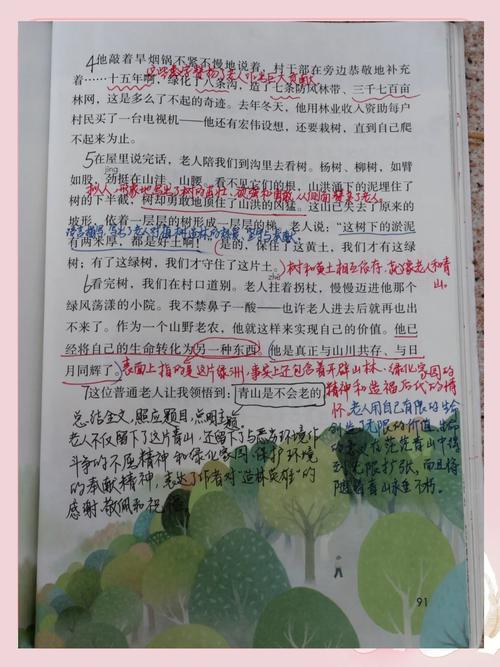 4他敲着旱烟锅不紧不慢地说着，村干部在旁边恭敬地补充
这些数字赞扬了老人作出巨大贡献
着……十五年啊，绿化了八条沟，造了七条防风林带、三千七百亩
林网，这是多么了不起的奇迹。去年冬天，他用林业收入资助每户
村民买了一台电视机——他还有宏伟设想，还要栽树，直到自己爬
不起来为止。
5在屋里说完话，老人陪我们到沟里去看树。杨树、柳树，如臂
jìng
如股，劲挺在山洼、山腰。看不见它们的根，山洪涌下的泥埋住了
拟人，形象地写出了树的
树的下半截，树却勇敢地顶住了山洪的凶猛。这山已失去了原来的
坡形，依着一层层的树形成一层层的梯。老人说：“这树下的淤泥
语言描写，写出了老人对植树造林的
有两米厚，都是好土啊！”是的，保住了这黄土，我们才有这绿
树；有了这绿树，我们才守住了这片土。
树和黄土相互依存，就像老人和青山。
zhǔ
6看完树，我们在村口道别。老人拄着拐杖，慢慢迈进他那个
绿风荡漾的小院。我不禁鼻子一酸——也许老人进去后就再也出
不来了。作为一个山野老农，他就这样来实现自己的价值。他已
经将自己的生命转化为另一种东西。他是真正与山川共存、与日
月同辉了。
表面上指的是这片绿洲，事实上还包含着开辟山林、绿化家园的
精神和造福后代的情怀。
7这位普通老人让我领悟到：青山是不会老的。
总结全文，照应题目，点明主题。
老人不仅留下了这片青山，还留下了与恶劣环境作
斗争的不屈精神和绿化家园、保护环境
的奉献精神，表达了作者对“造林英雄”的
感谢、敬佩和祝福。
老人用自己有限的生命
创造了无限的价值，生命
的意义在茫茫青山中得
到无限扩张，而且将
随着青山永垂不朽。
91